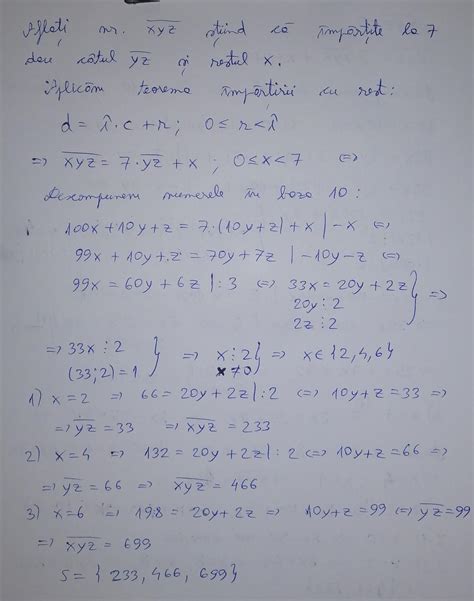 Aflați nr. x̅y̅z̅ știind că împărțite la 7
dau câtul y̅z̅ și restul x.
Aplicăm teorema împărțirii cu rest:
d = î·c + r; 0 ≤ r < î
⇒ x̅y̅z̅ = 7·y̅z̅ + x; 0 ≤ x < 7 ⇔
Descompunem numerele în baza 10:
100x + 10y + z = 7·(10y + z) + x | -x ⇔
99x + 10y + z = 70y + 7z | -10y - z ⇔
99x = 60y + 6z | :3 ⇔ 33x = 20y + 2z } ⇒
20y ⋮ 2
2z ⋮ 2
⇒ 33x ⋮ 2 } ⇒ x ⋮ 2 } ⇒ x ∈ {2, 4, 6}
(33; 2) = 1 x ≠ 0
1) x = 2 ⇒ 66 = 20y + 2z | :2 ⇔ 10y + z = 33 ⇒
⇒ y̅z̅ = 33 ⇒ x̅y̅z̅ = 233
2) x = 4 ⇒ 132 = 20y + 2z | :2 ⇔ 10y + z = 66 ⇒
⇒ y̅z̅ = 66 ⇒ x̅y̅z̅ = 466
3) x = 6 ⇒ 198 = 20y + 2z ⇒ 10y + z = 99 ⇔ y̅z̅ = 99
⇒ x̅y̅z̅ = 699
S = {233, 466, 699}